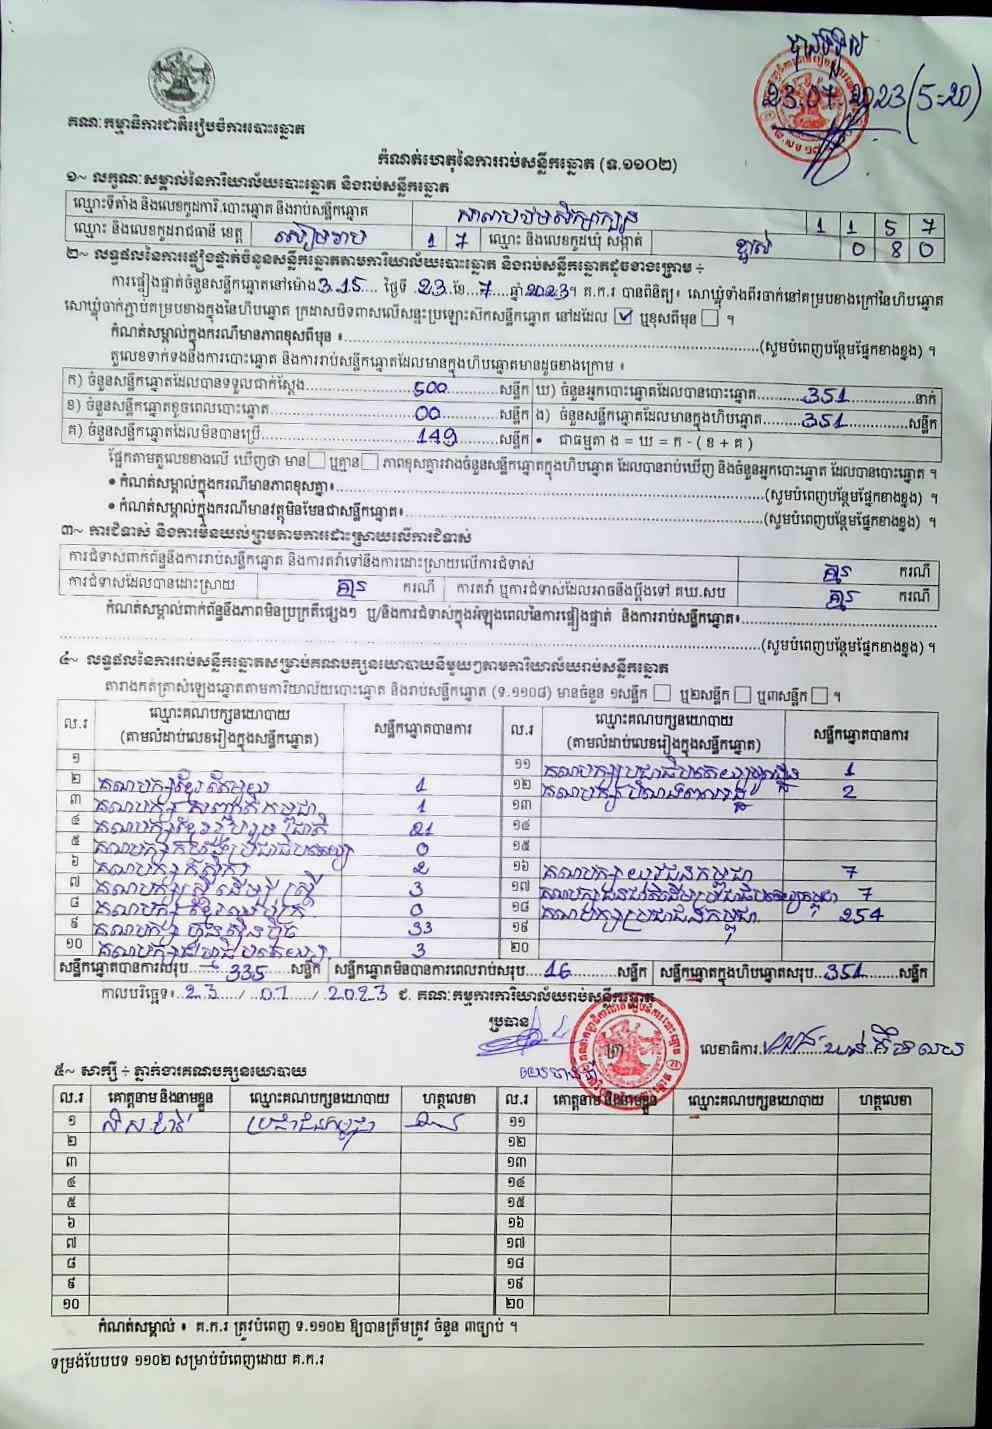 បានទទួល
23.07.2023 (5:20)
គណៈកម្មាធិការជាតិរៀបចំការបោះឆ្នោត
កំណត់ហេតុនៃការរាប់សន្លឹកឆ្នោត (ទ.១១០២)
១~ លក្ខណៈសម្គាល់នៃការិយាល័យបោះឆ្នោត និងរាប់សន្លឹកឆ្នោត
ឈ្មោះទីតាំង និងលេខកូដការិ.បោះឆ្នោត និងរាប់សន្លឹកឆ្នោត 1 1 5 7
ឈ្មោះ និងលេខកូដរាជធានី ខេត្ត សៀមរាប 1 7 ឈ្មោះ និងលេខកូដឃុំ សង្កាត់ ខ្នាស់ 0 8 0
២~ លទ្ធផលនៃការផ្ទៀងផ្ទាត់ចំនួនសន្លឹកឆ្នោតតាមការិយាល័យបោះឆ្នោត និងរាប់សន្លឹកឆ្នោតដូចខាងក្រោម ÷
ការផ្ទៀងផ្ទាត់ចំនួនសន្លឹកឆ្នោតនៅម៉ោង 3.15 ថ្ងៃទី 23 ខែ 7 ឆ្នាំ 2023។ គ.ក.រ បានពិនិត្យ៖ សោឃ្លុំទាំងពីរចាក់នៅគម្របខាងក្រៅនៃហិបឆ្នោត
សោឃ្លុំចាក់ភ្ជាប់គម្របខាងក្នុងនៃហិបឆ្នោត ក្រដាសបិទពាសលើសន្ទះប្រឡោះសិកសន្លឹកឆ្នោត នៅដដែល ☑ ឬខុសពីមុន ☐ ។
កំណត់សម្គាល់ក្នុងករណីមានភាពខុសពីមុន ៖ (សូមបំពេញបន្ថែមផ្នែកខាងខ្នង) ។
តួលេខទាក់ទងនឹងការបោះឆ្នោត និងការរាប់សន្លឹកឆ្នោតដែលមានក្នុងហិបឆ្នោតមានដូចខាងក្រោម ៖
ក) ចំនួនសន្លឹកឆ្នោតដែលបានទទួលជាក់ស្តែង 500 សន្លឹក ឃ) ចំនួនអ្នកបោះឆ្នោតដែលបានបោះឆ្នោត 351 នាក់
ខ) ចំនួនសន្លឹកឆ្នោតខូចពេលបោះឆ្នោត 00 សន្លឹក ង) ចំនួនសន្លឹកឆ្នោតដែលមានក្នុងហិបឆ្នោត 351 សន្លឹក
គ) ចំនួនសន្លឹកឆ្នោតដែលមិនបានប្រើ 149 សន្លឹក • ជាធម្មតា ង = ឃ = ក - ( ខ + គ )
ផ្អែកតាមតួលេខខាងលើ ឃើញថា មាន ☐ ឬគ្មាន ☐ ភាពខុសគ្នារវាងចំនួនសន្លឹកឆ្នោតក្នុងហិបឆ្នោត ដែលបានរាប់ឃើញ និងចំនួនអ្នកបោះឆ្នោត ដែលបានបោះឆ្នោត ។
• កំណត់សម្គាល់ក្នុងករណីមានភាពខុសគ្នា៖ (សូមបំពេញបន្ថែមផ្នែកខាងខ្នង) ។
• កំណត់សម្គាល់ក្នុងករណីមានវត្ថុមិនមែនជាសន្លឹកឆ្នោត៖ (សូមបំពេញបន្ថែមផ្នែកខាងខ្នង) ។
៣~ ការជំទាស់ និងការមិនយល់ព្រមតាមការដោះស្រាយលើការជំទាស់
ការជំទាស់ពាក់ព័ន្ធនឹងការរាប់សន្លឹកឆ្នោត និងការតវ៉ាទៅនឹងការដោះស្រាយលើការជំទាស់ គ្មាន ករណី
ការជំទាស់ដែលបានដោះស្រាយ គ្មាន ករណី ការតវ៉ា ឬការជំទាស់ដែលអាចនឹងប្តឹងទៅ គឃ.សប គ្មាន ករណី
កំណត់សម្គាល់ពាក់ព័ន្ធនឹងភាពមិនប្រក្រតីផ្សេងៗ ឬ/និងការជំទាស់ក្នុងអំឡុងពេលនៃការផ្ទៀងផ្ទាត់ និងការរាប់សន្លឹកឆ្នោត៖
(សូមបំពេញបន្ថែមផ្នែកខាងខ្នង) ។
៤~ លទ្ធផលនៃការរាប់សន្លឹកឆ្នោតសម្រាប់គណបក្សនយោបាយនីមួយៗតាមការិយាល័យរាប់សន្លឹកឆ្នោត
តារាងកត់ត្រាសំឡេងឆ្នោតតាមការិយាល័យបោះឆ្នោត និងរាប់សន្លឹកឆ្នោត (ទ.១១០៨) មានចំនួន ១សន្លឹក ☐ ឬ២សន្លឹក ☐ ឬ៣សន្លឹក ☐ ។
ល.រ ឈ្មោះគណបក្សនយោបាយ (តាមលំដាប់លេខរៀងក្នុងសន្លឹកឆ្នោត) សន្លឹកឆ្នោតបានការ ល.រ ឈ្មោះគណបក្សនយោបាយ (តាមលំដាប់លេខរៀងក្នុងសន្លឹកឆ្នោត) សន្លឹកឆ្នោតបានការ
១ ១១ គណបក្សប្រជាធិបតេយ្យមូលដ្ឋាន 1
២ គណបក្សខ្មែរតែមួយ 1 ១២ គណបក្ស 2
៣ គណបក្ស សញ្ជាតិកម្ពុជា 1 ១៣
៤ គណបក្សខ្មែររួបរួមជាតិ 21 ១៤
៥ គណបក្សកម្លាំងប្រជាធិបតេយ្យ 0 ១៥
៦ គណបក្ស កសិករ 2 ១៦ គណបក្សយុវជនកម្ពុជា 7
៧ គណបក្ស ស្ត្រីដើម្បីស្ត្រី 3 ១៧ 7
៨ គណបក្សខ្មែរ 0 ១៨ គណបក្សប្រជាជនកម្ពុជា 254
៩ គណបក្សហ៊្វុនស៊ិនប៉ិច 33 ១៩
១០ គណបក្សធម្មាធិបតេយ្យ 3 ២០
សន្លឹកឆ្នោតបានការសរុប 335 សន្លឹក សន្លឹកឆ្នោតមិនបានការពេលរាប់សរុប 16 សន្លឹក សន្លឹកឆ្នោតក្នុងហិបឆ្នោតសរុប 351 សន្លឹក
កាលបរិច្ឆេទ៖ 23 / 07 / 2023 ជ. គណៈកម្មការការិយាល័យរាប់សន្លឹកឆ្នោត
ប្រធាន
លេខាធិការ
៥~ សាក្សី ÷ ភ្នាក់ងារគណបក្សនយោបាយ
ល.រ គោត្តនាម និងនាមខ្លួន ឈ្មោះគណបក្សនយោបាយ ហត្ថលេខា ល.រ គោត្តនាម និងនាមខ្លួន ឈ្មោះគណបក្សនយោបាយ ហត្ថលេខា
១ ប្រជាជនកម្ពុជា ១១
២ ១២
៣ ១៣
៤ ១៤
៥ ១៥
៦ ១៦
៧ ១៧
៨ ១៨
៩ ១៩
១០ ២០
កំណត់សម្គាល់ ៖ គ.ក.រ ត្រូវបំពេញ ទ.១១០២ ឱ្យបានត្រឹមត្រូវ ចំនួន ៣ច្បាប់ ។
ទម្រង់បែបបទ ១១០២ សម្រាប់បំពេញដោយ គ.ក.រ